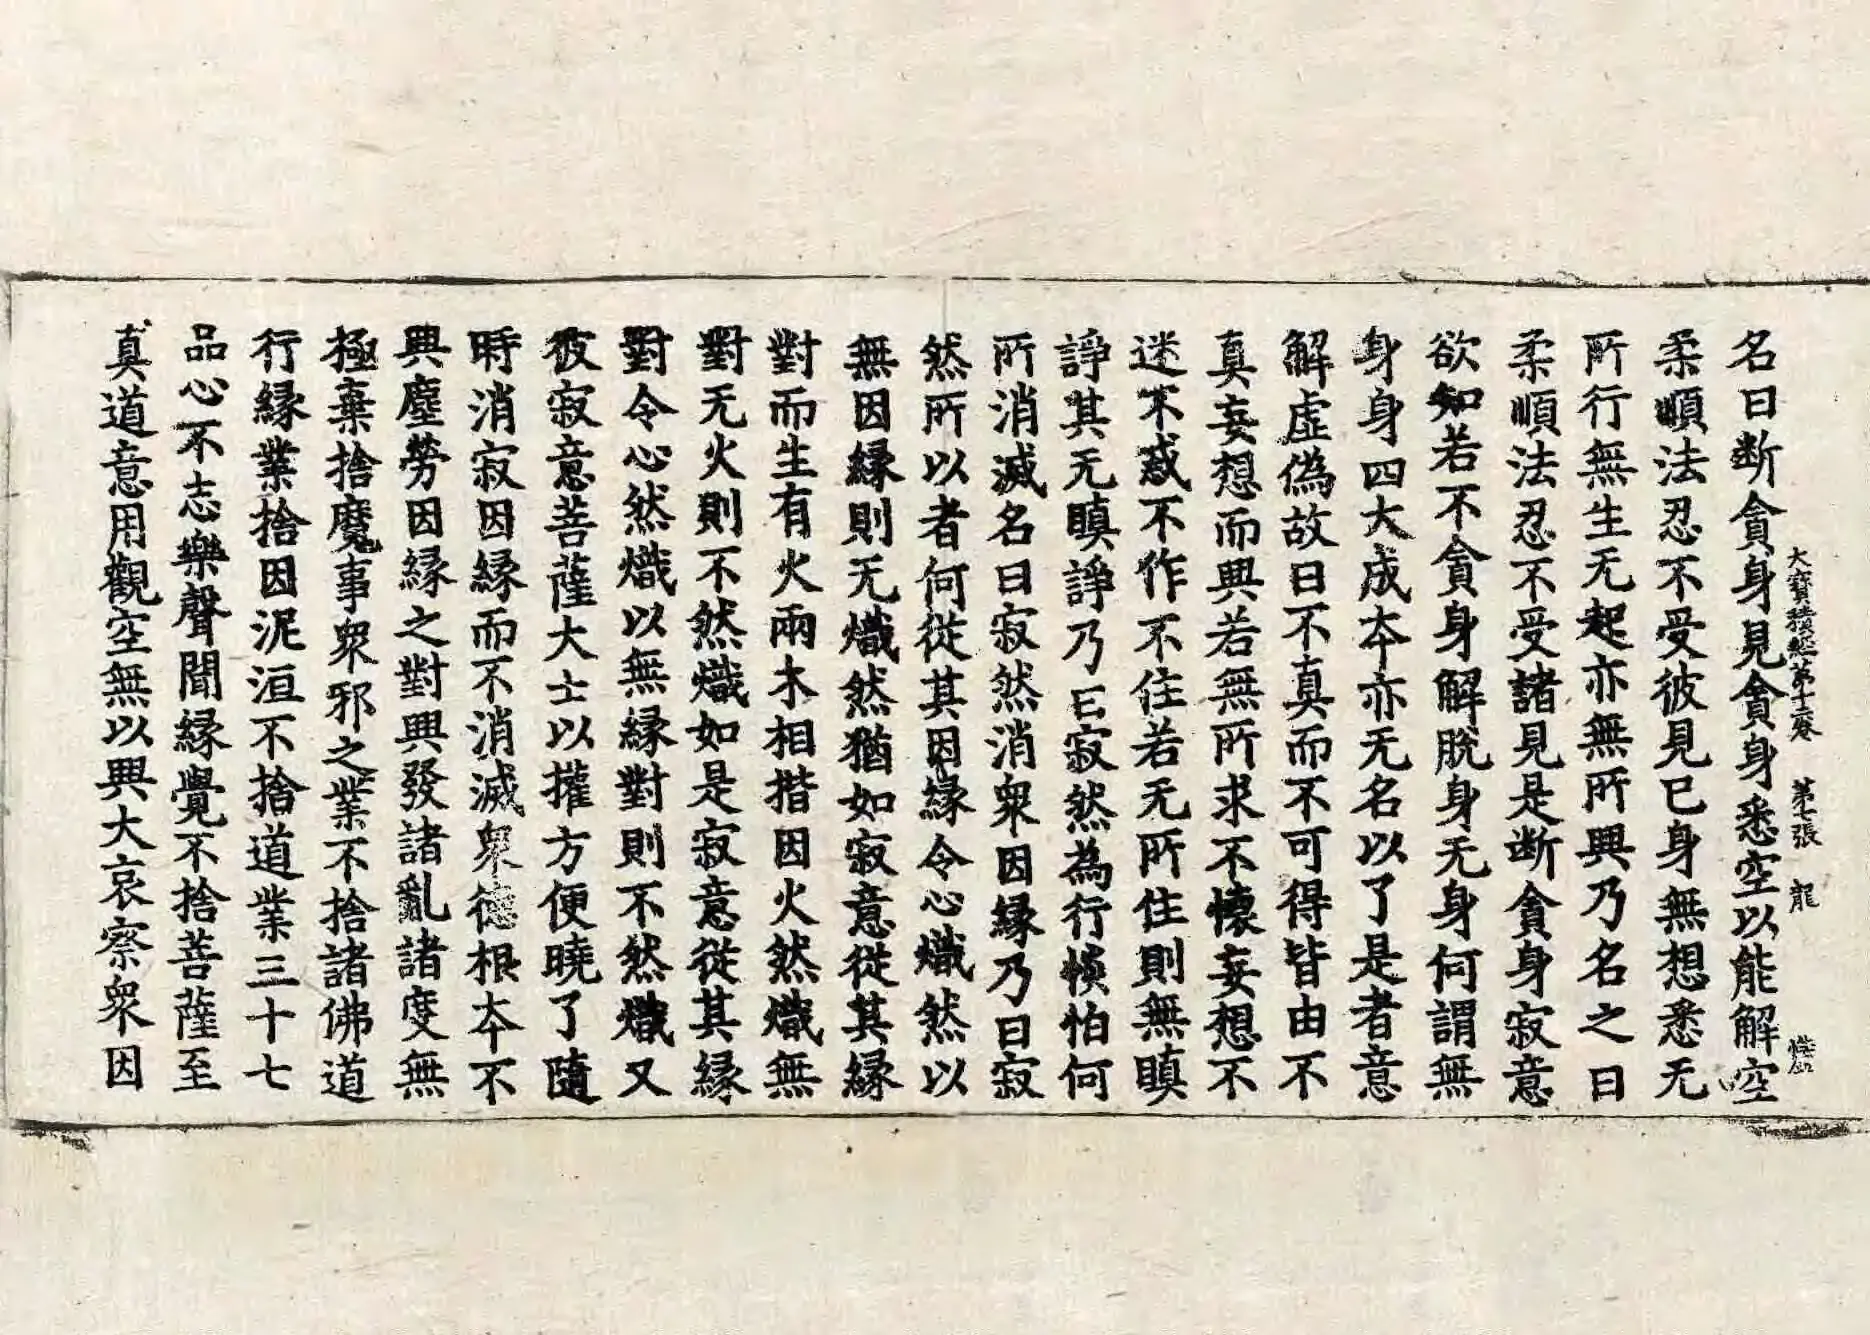 大寶積經第十二卷 第七張 龍
名曰断貪身見貪身悉空以能解空
柔順法忍不受彼見已身無想悉无
所行無生无起亦無所興乃名之曰
柔順法忍不受諸見是断貪身寂意
欲知若不貪身解脫身无身何謂無
身身四大成夲亦无名以了是者意
解虛偽故曰不真而不可得皆由不
真妄想而興若無所求不懷妄想不
迷不惑不作不住若无所住則無瞋
諍其无瞋諍乃曰寂然為行惔怕何
所消滅名曰寂然消衆因縁乃曰寂
然所以者何從其因縁令心熾然以
無因縁則无熾然猶如寂意從其縁
對而生有火兩木相揩因火然熾無
對无火則不然熾如是寂意從其縁
對令心然熾以無縁對則不然熾又
彼寂意菩薩大士以攉方便曉了隨
時消寂因縁而不消滅衆德根夲不
興塵勞因縁之對興發諸亂諸度無
極棄捨魔事衆邪之業不捨諸佛道
行縁業捨因泥洹不捨道業三十七
品心不志樂聲聞縁覺不捨菩薩至
真道意用觀空無以興大哀察衆因